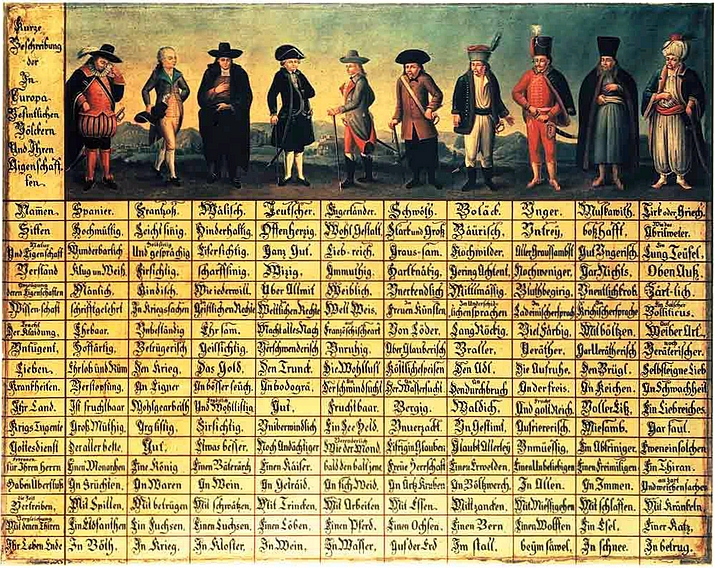 Kurze
Beschreibung
der
In
Europa
Befintlichen
Völckern
Und Ihren
Aigenschaff-
ten.
Namen. Spanier. Frantzoß. Wälisch. Teutscher. Engerländer. Schwöth. Boläck. Unger. Muskawith. Tirk oder Griech.
Sitten Hochmüttig. Leichtsinig. Hinderhaltig. Offenherzig. Wohl Gestalt. Starck und Groß Bäurisch. Untrey. boßhafft. Abrilweter.
Und Eigenschaft Wunderbarlich Und gesprächig Eifersichtig. Ganz Gut. Lieb-reich. Graus-sam. Hochwilder. Aller Graussambst. Gut Ungerisch. Lung Teüfel.
Verstand Klug un Weiß. Firsichtig. scharffsinig. Wizig. Ammuthig. Hartknäkig. Gering Achtent. Nochweniger. Gar Nichts. Oben Auß.
deren Eigenschaften Mänlich. Kindisch. Wie iederwill. Über Allmit Weiblich. Unerkendlich Mittlmäsig. Bluthbegirig. Unentlich krob. Zärt-lich.
Wissenschaft schrifftgelehrt In Kriegssachen Geistlichen Rechte Weltlichen Rechte Welt Weis. Freuen Künsten lichensprachen Ladeinischersprach Krichischersprache Politicus.
Der Klaidung. Ehrbaar. Unbeständig Ehrsam. Macht alles Nach Französischeart Von Löder. Lang Röckig. Viel Färbig. Mit böltzen. Weiber Art.
Untugent. Hoffärtig. Betrügerisch Geilsichtig. Verschwenderisch Unruhig. Aber Glauberisch Braller. Veräther. Gar Verätherisch Verätherischer.
Lieben. Ehrlob und Rum Den Krieg. Das Gold. Den Trunck. Die Wohllust Köstlichespeisen Den Adl. Die Aufruhe. Den Brügl. Selbsteigne Lieb
Krankheiten. Verstopfung. An Eigner An bösser seüch. An bodogrä. Der schwindsucht Der Wassersucht. Den durchbruch An der freis. An Keichen. An Schwachheit
Ihr Land. Ist fruchtbaar Wohlgearbeith Und Wohllistig Gut. Fruchtbaar. Bergig. Waldich. Und golt Reich. Voller Eiß. Ein Liebreiches.
Krigs Tugente Groß Müthig Arg listig. Firsichtig. Uniberwindlich Ein See Held. Unverzackt. Un Gestimt. Aufriererisch. Miesamb. Gar faul.
Gottesdienst Der aller beste. Gut. Etwas besser. Noch Andächtiger Wie der Mond Eifrig in Glauben Glaubt Allerley Unmüessig. Ein Abtriniger. Eweneinsolchen
für Ihren Herrn Einen Monarchen Eine König Einen Bäterärch Einen Käiser. bald den bald jene Freüe Herrschaft Einen Erwelden. Einen Unbeliebigen Einen Freimilligen Ein Thiran.
Haben Überfluß In Früchten In Waren In Wein. In Getraid. In fich Weid. In Ärtz Kruben In Böltzwerch. In Allen. In Immen. Und weichen sachen
Vertreiben. Mit Spillen. Mit betrügen Mit schwätzen. Mit Trincken. Mit Arbeiten Mit Essen. Mit zancken. Mit Miessigehen Mit schlaffen. Mit Kränkeln
Mit denen Thiren Ein Eldfanthen Ein Fuchsen. Einen Luchsen. Einen Löben. Einen Pferd. Einen Ochsen. Einen Bern Einen Wolffen Ein Esel. Einer Katz.
Ihr Leben Ende In Böth. In Krieg. In Kloster. In Wein. In Wasser, Auf der Erd Im stall. beym säwel. In schnee. In betrug.